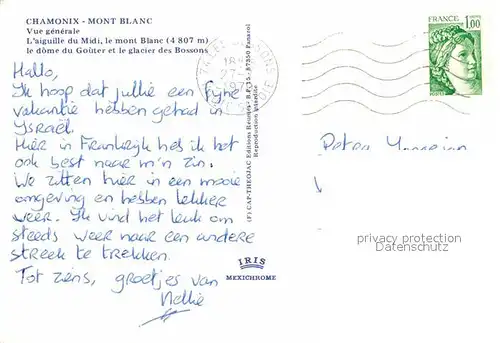 CHAMONIX - MONT BLANC
Vue générale
L'aiguille du Midi, le mont Blanc (4 807 m)
le dôme du Goûter et le glacier des Bossons
Hallo,
Ik hoop dat jullie een fijne
vakantie hebben gehad in
Israël.
Hier in Frankrijk heb ik het
ook best naar m'n zin.
We zitten hier in een mooie
omgeving en hebben lekker
weer. Ik vind het leuk om
steeds weer naar een andere
streek te trekken.
Tot ziens, groetjes van
Nellie
(F) CAP-THEOJAC Editions Reunies - B.P. - 87350 Panazol
Reproduction interdite
IRIS
MEXICHROME
FRANCE
1,00
Petra
privacy protection
Datenschutz